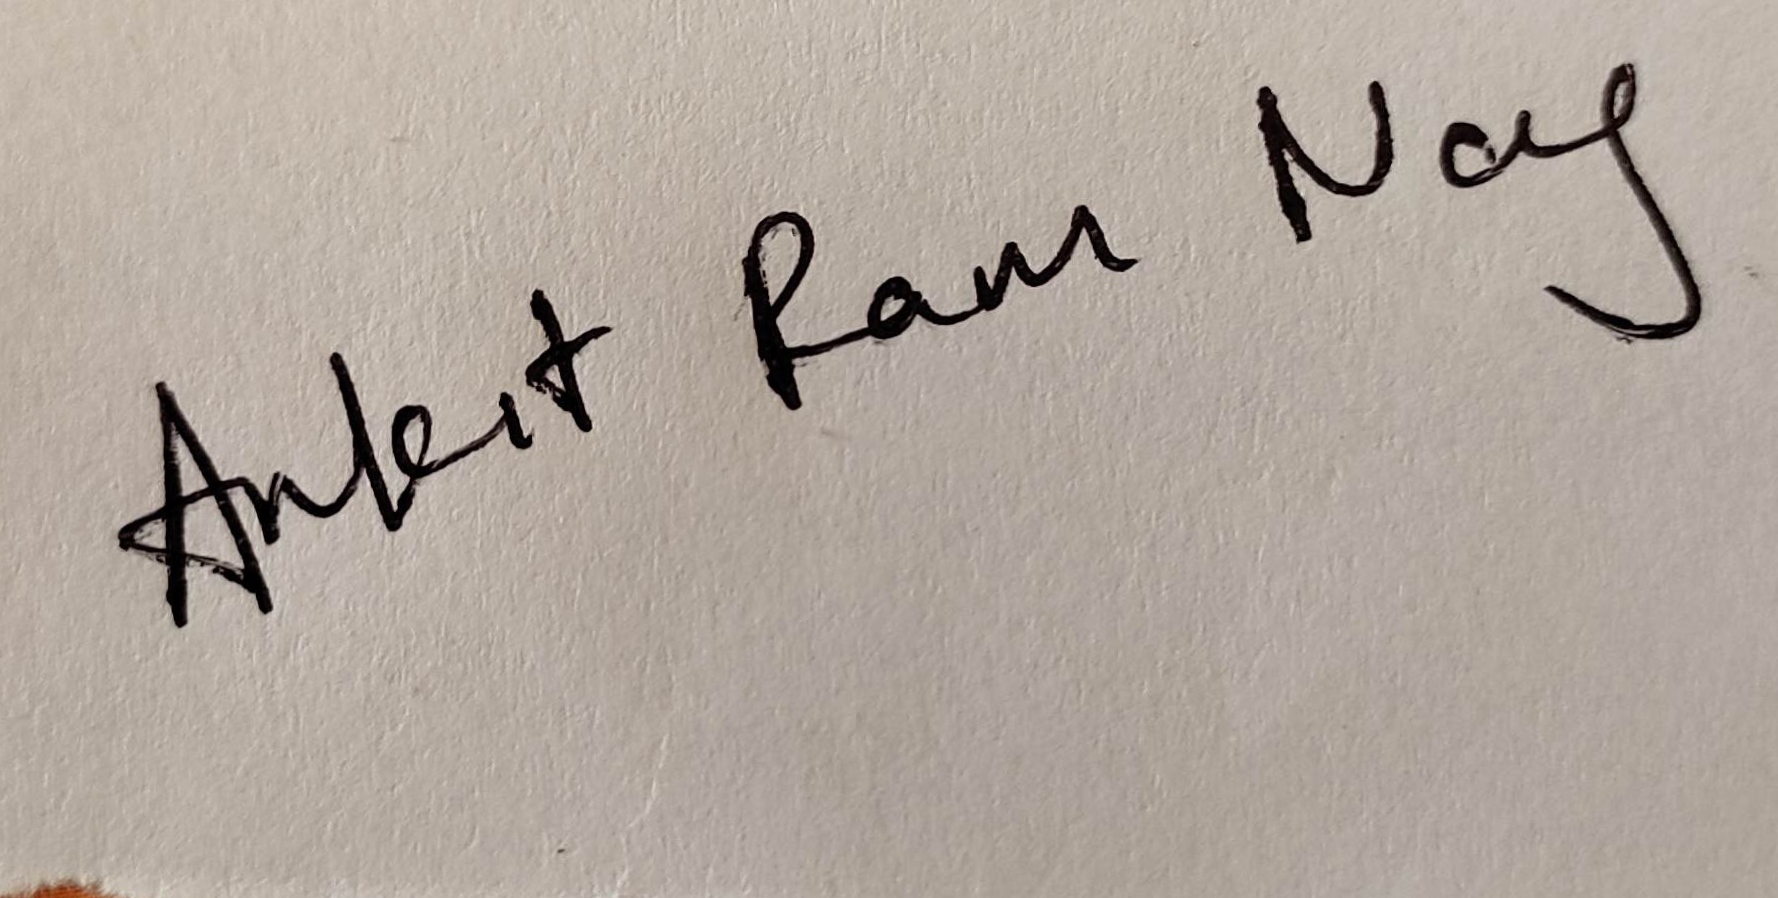 Ankit Ram Nag